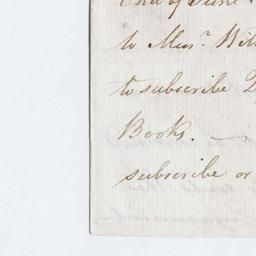 End of June
to Mess.rs Will
to subscribe
Books. —
subscribe or